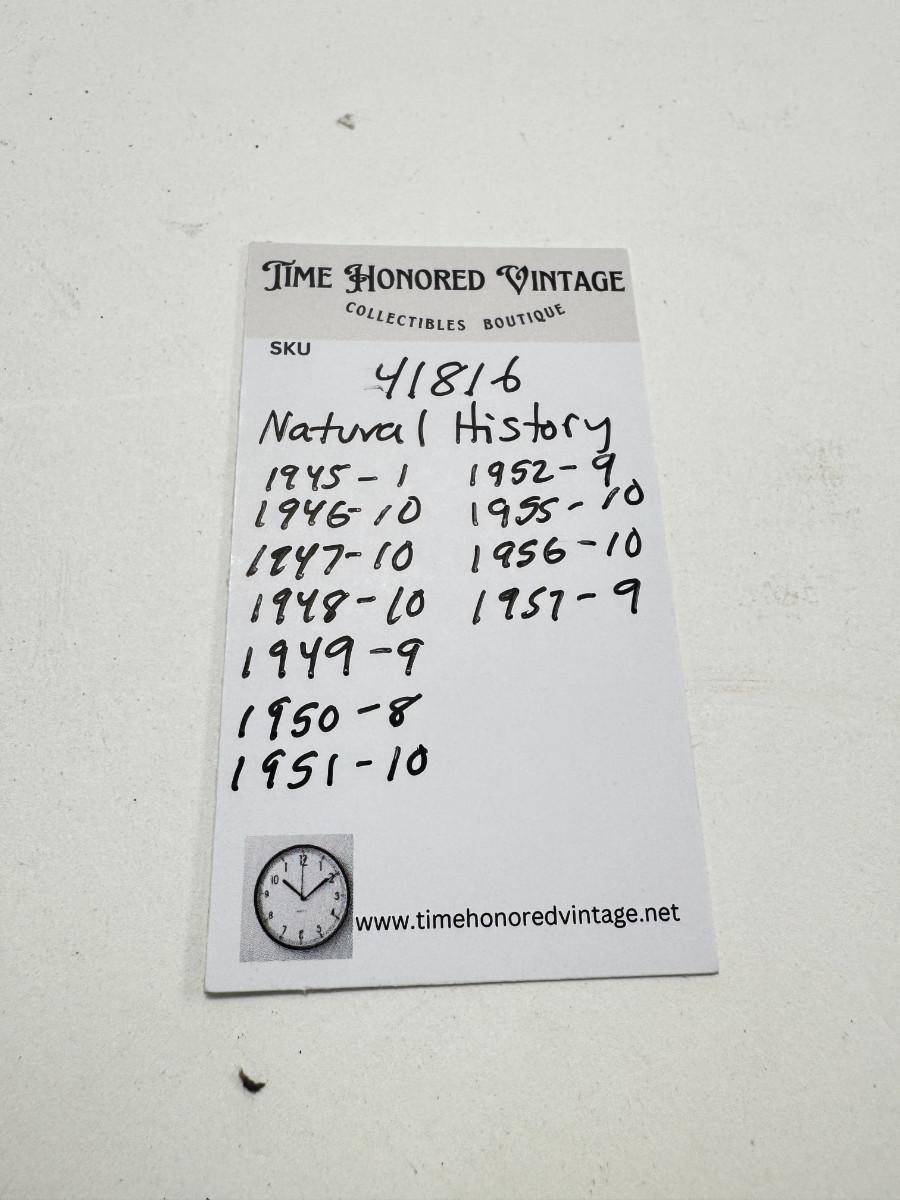 TIME HONORED VINTAGE
COLLECTIBLES BOUTIQUE
SKU
41816
Natural History
1945-1 1952-9
1946-10 1955-10
1947-10 1956-10
1948-10 1957-9
1949-9
1950-8
1951-10
www.timehonoredvintage.net